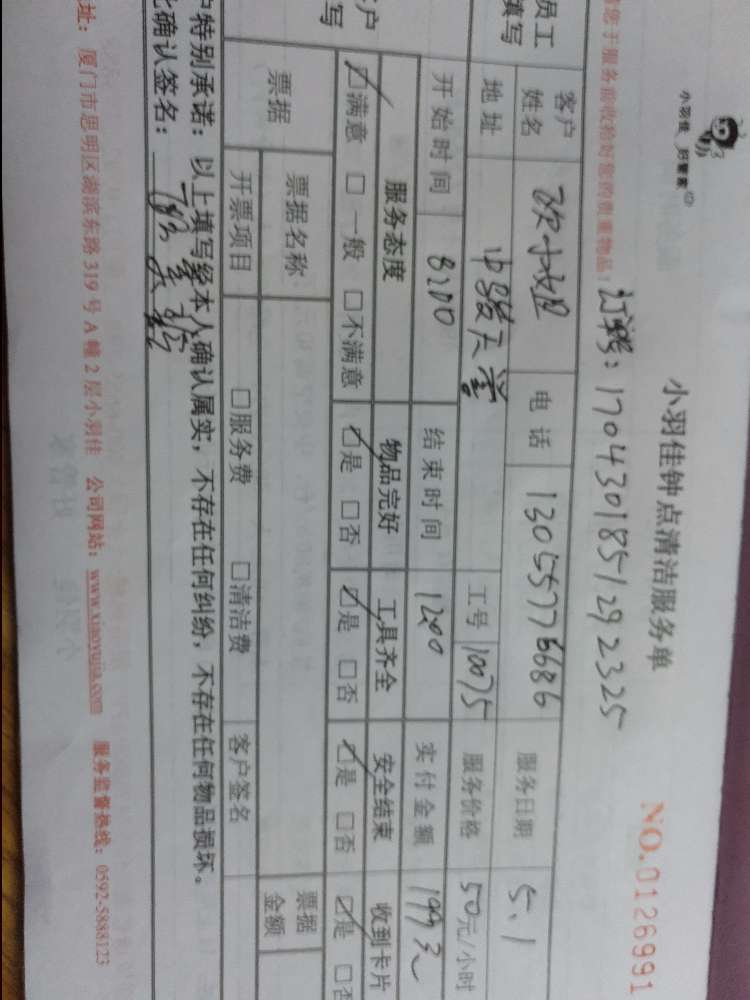 小羽佳 好管家
小羽佳钟点清洁服务单
NO.0126991
您于服务前收拾好您的贵重物品!
订单号: 1704301851292325
员工
填写
客户
姓名
电话
13055776686
服务日期
5.1
地址
工号
10075
服务价格
50元/小时
开始时间
8:00
结束时间
1200
实付金额
199元
户
写
服务态度
物品完好
工具齐全
安全结束
收到卡片
☑满意 □一般 □不满意
☑是 □否
☑是 □否
☑是 □否
☑是 □否
票据
票据名称:
票据
金额
开票项目
□服务费 □清洁费
客户签名
户特别承诺:以上填写经本人确认属实,不存在任何纠纷,不存在任何物品损坏。
此确认签名:
址:厦门市思明区湖滨东路319号A幢2层小羽佳 公司网站:www.xiaoyujia.com 服务监督热线:0592-5888123